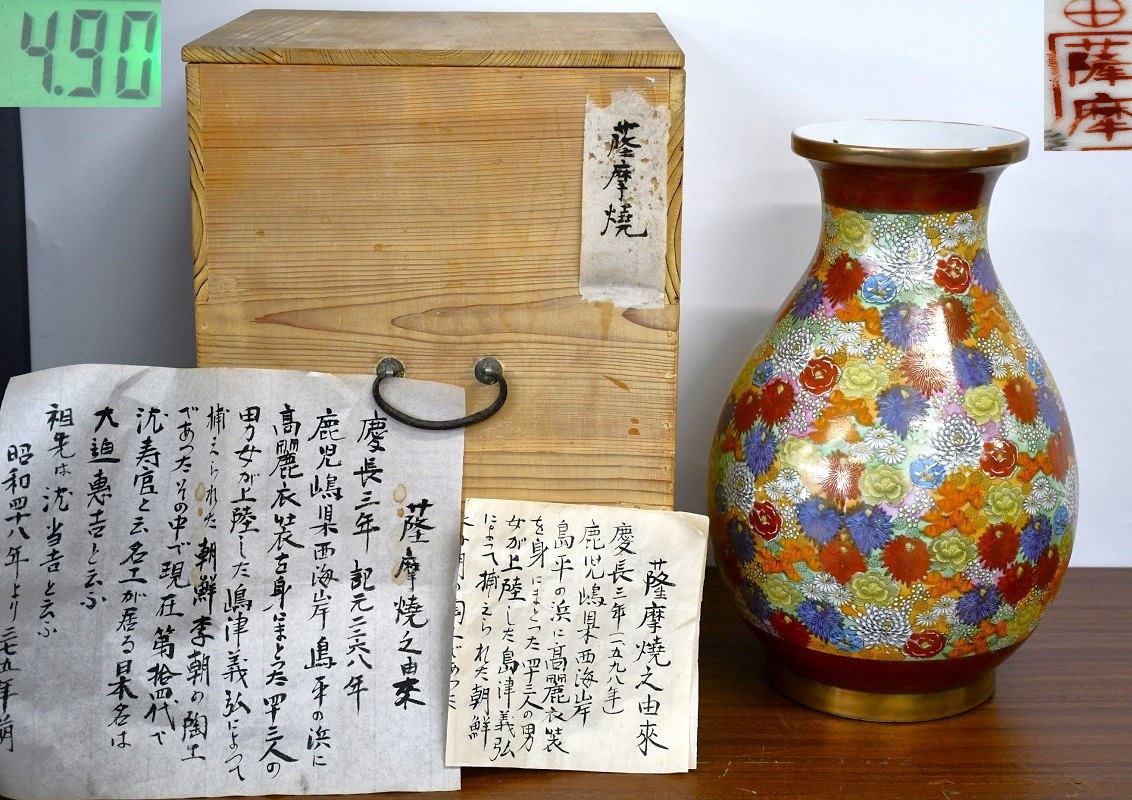 4.90
薩摩
薩摩燒
薩摩燒之由來
慶長三年 記元二二六八年
鹿児嶋県西海岸島平の浜に
高麗衣装を身にまとった四十三人の
男女が上陸した嶋津義弘によって
捕えられた朝鮮李朝の陶工
であったその中で現在第拾四代で
沈寿官と云名工が居る日本名は
大迫惠吉と云ふ
祖先は沈当吉と云ふ
昭和四十八年より三七五年前
薩摩燒之由來
慶長三年(一五九八年)
鹿児嶋県西海岸
島平の浜に高麗衣装
を身にまとった四十三人の男
女が上陸した島津義弘
によって捕えられた朝鮮